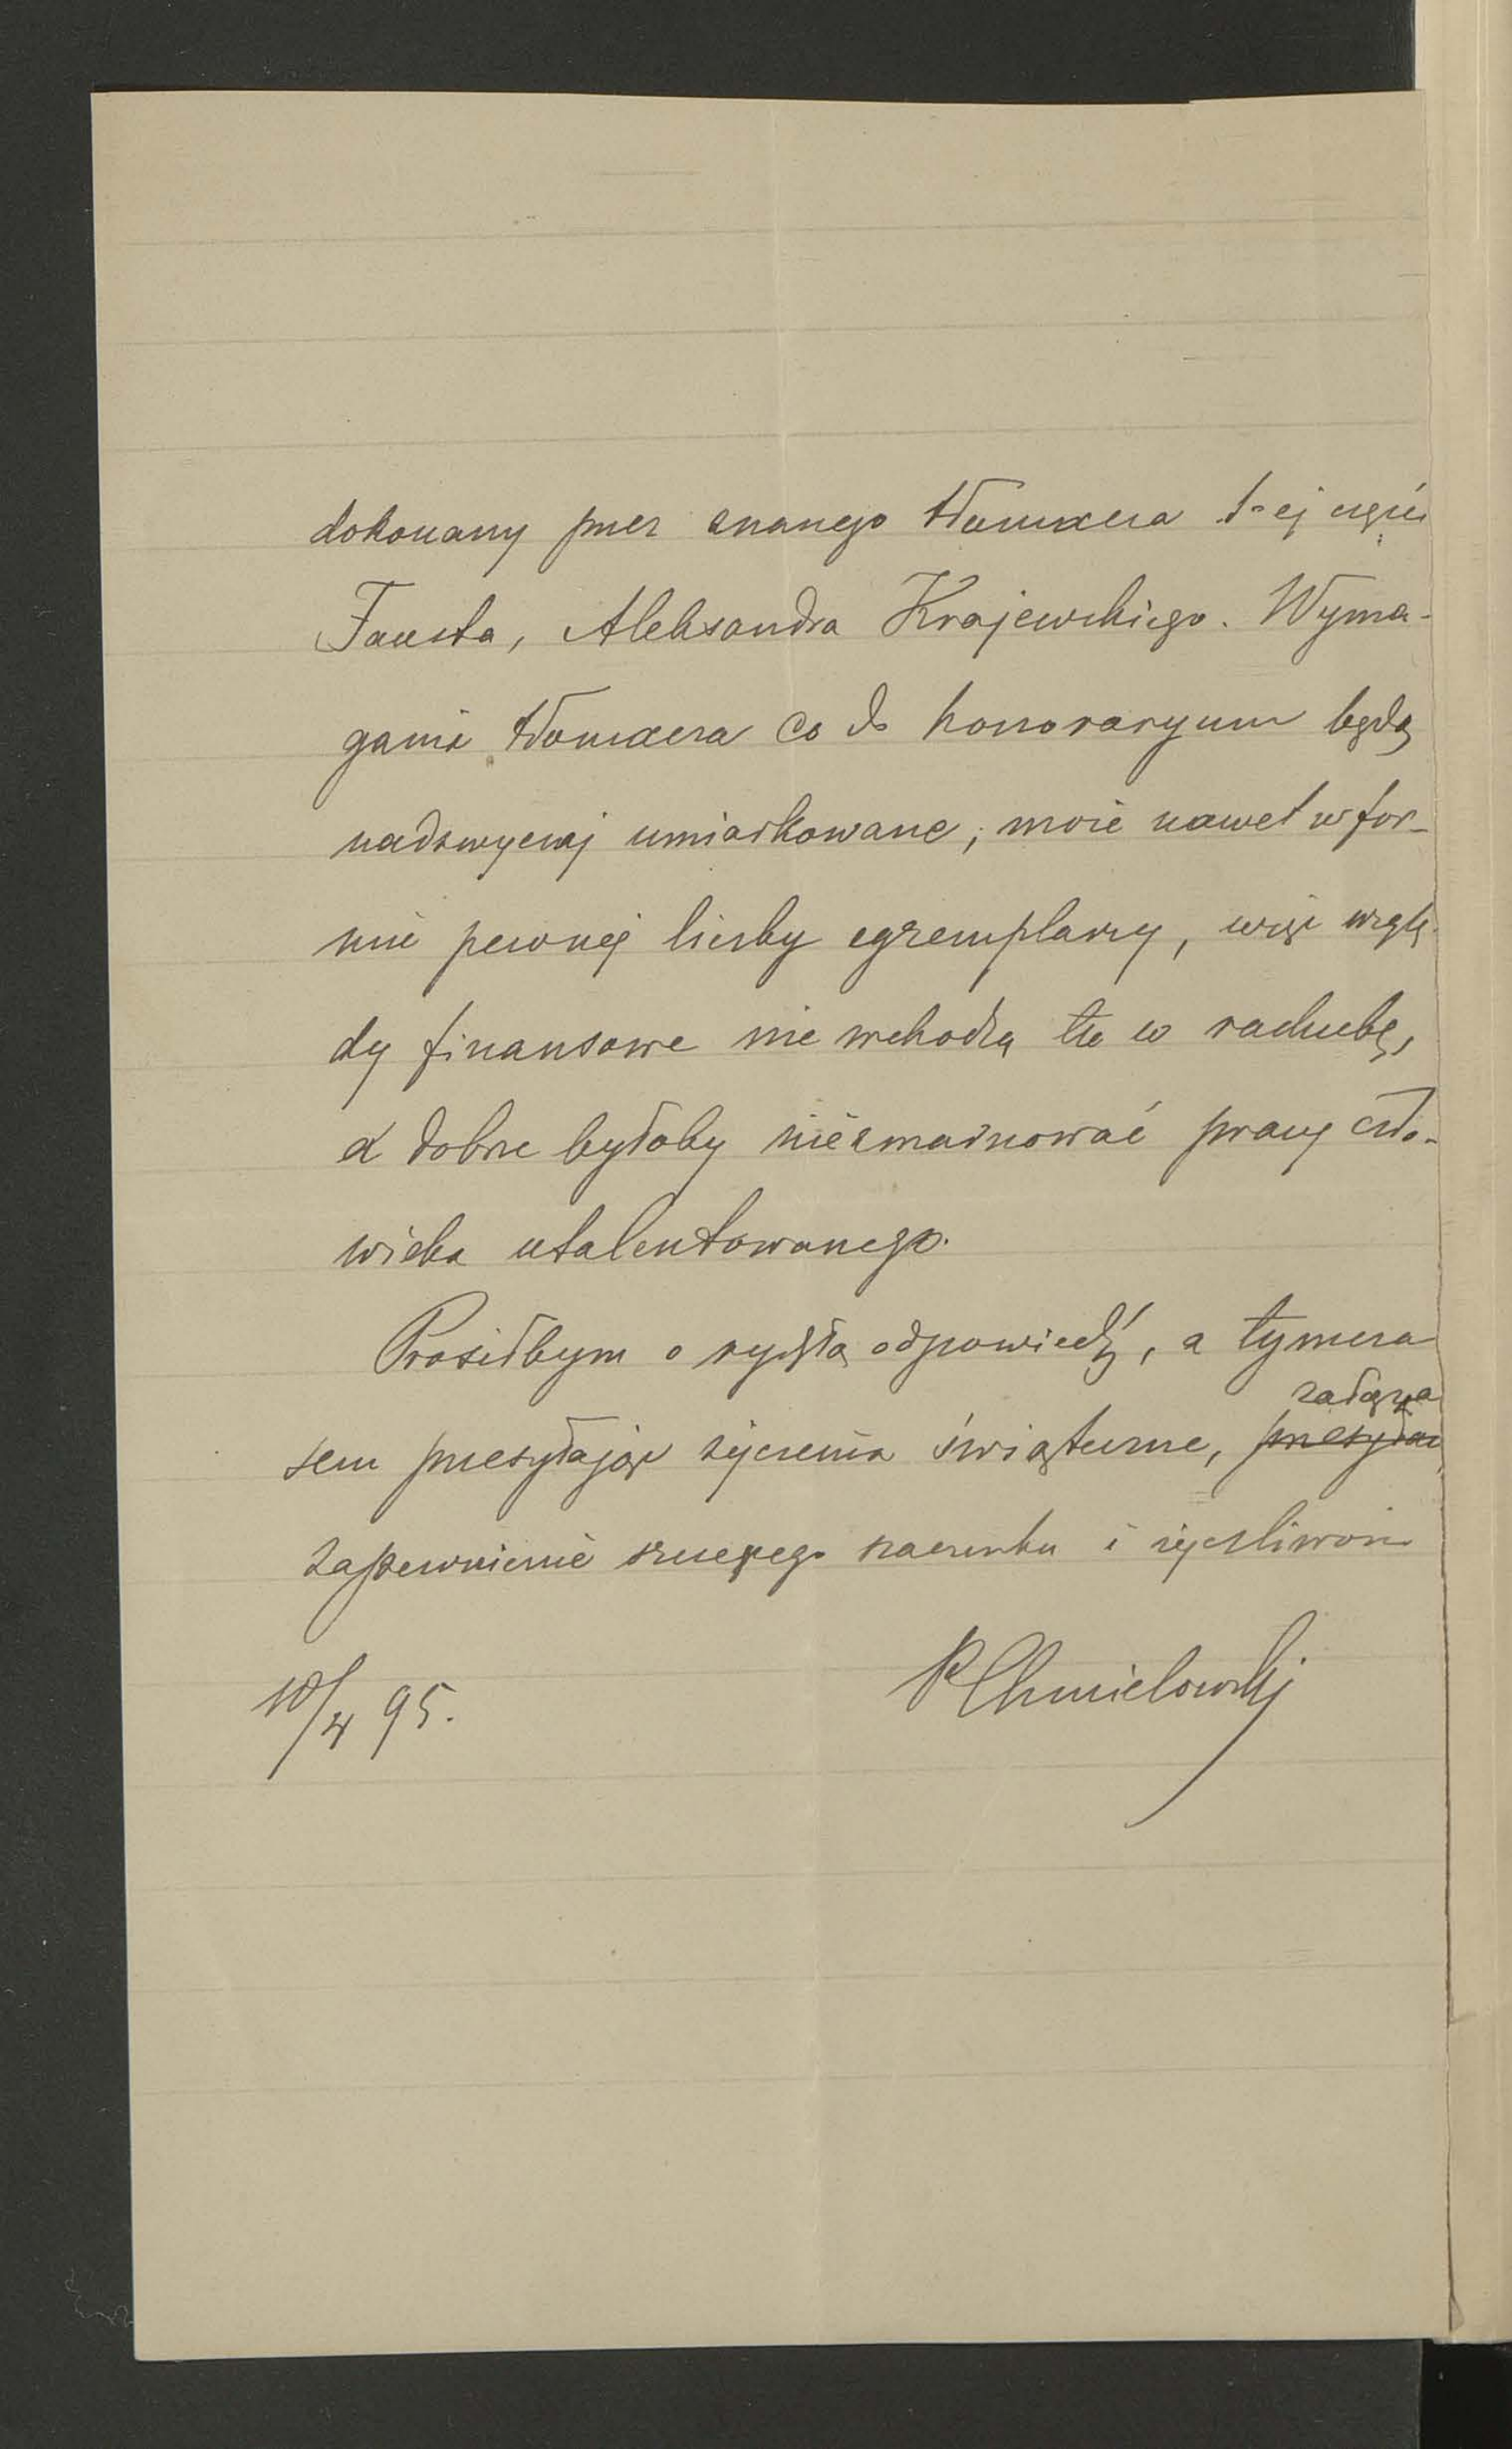 dokonany przez znanego tłumacza 1-ej części
Fausta, Aleksandra Krajewskiego. Wyma-
gania tłumacza co do honoraryum będą
nadzwyczaj umiarkowane, może nawet w for-
mie pewnej liczby egzemplarzy, więc wzglę-
dy finansowe nie wchodzą tu w rachubę,
a dobrze byłoby nie zmarnować pracy czło-
wieka utalentowanego.
Prosiłbym o rychłą odpowiedź, a tymcza
załącza
sem przesyłając życzenia świąteczne, przesyłam
zapewnienie szczerego szacunku i życzliwości
PChmielowski
10/4 95.